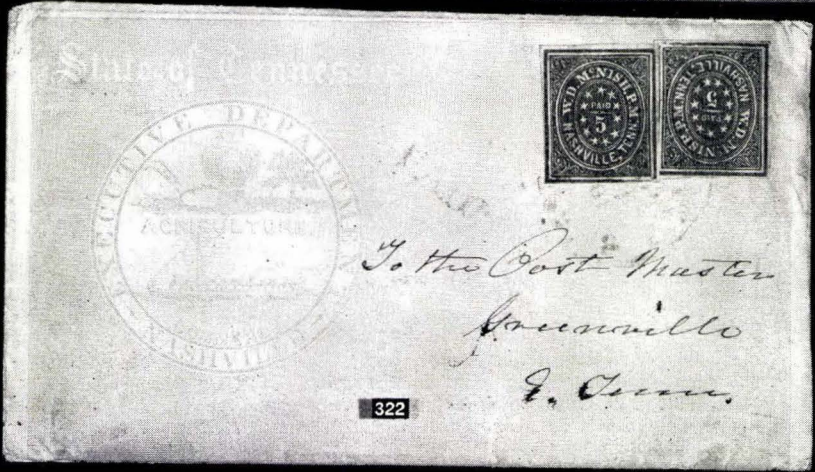 State of Tennessee
EXECUTIVE DEPARTMENT
AGRICULTURE
NASHVILLE
W.D. McNISH, P.M.
PAID
5
NASHVILLE, TENN.
W.D. McNISH, P.M.
PAID
5
NASHVILLE, TENN.
To the Post Master
Greenville
E. Tenn.
322